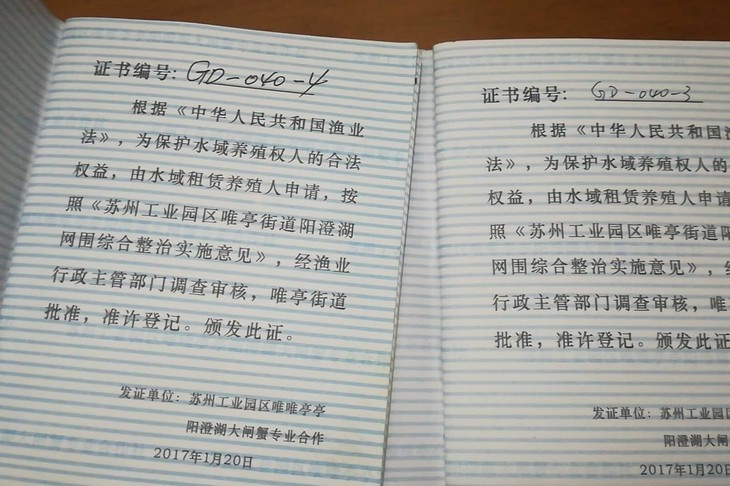 证书编号: GD-040-4
根据《中华人民共和国渔业
法》，为保护水域养殖权人的合法
权益，由水域租赁养殖人申请，按
照《苏州工业园区唯亭街道阳澄湖
网围综合整治实施意见》，经渔业
行政主管部门调查审核，唯亭街道
批准，准许登记。颁发此证。
发证单位：苏州工业园区唯唯亭亭
阳澄湖大闸蟹专业合作
2017年1月20日
证书编号: GD-040-3
根据《中华人民共和国渔
法》，为保护水域养殖权人的
权益，由水域租赁养殖人申请
照《苏州工业园区唯亭街道阳
网围综合整治实施意见》，经
行政主管部门调查审核，唯
批准，准许登记。颁发此证
发证单位：苏州工业园
阳澄湖大闸
2017年1月20